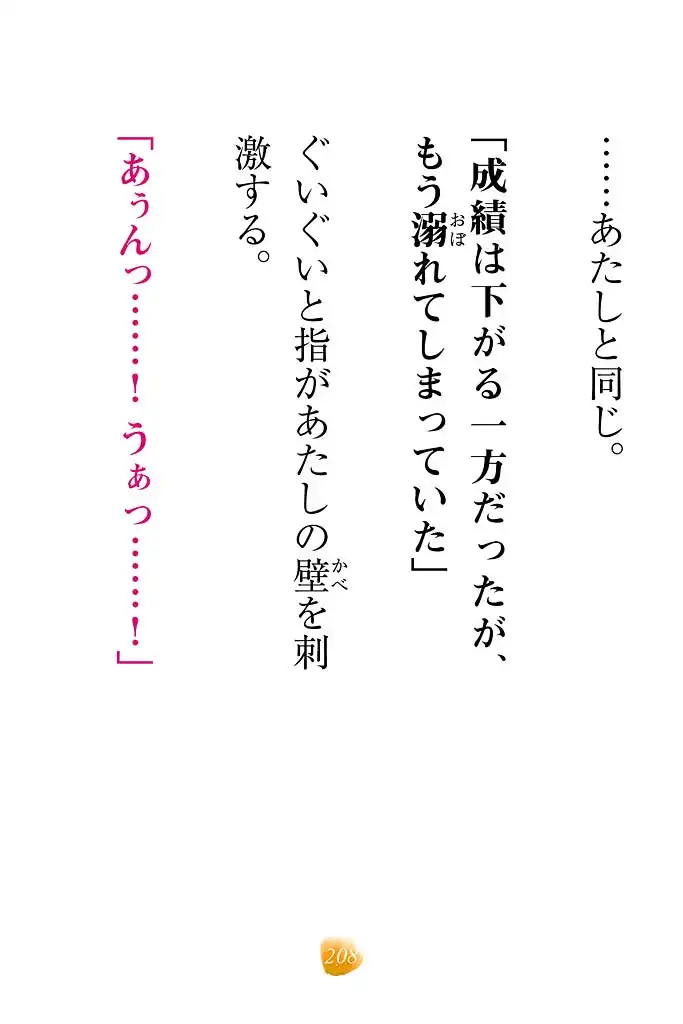 ……あたしと同じ。
「成績は下がる一方だったが、
もう溺れてしまっていた」
ぐいぐいと指があたしの壁を刺
激する。
「あぅんっ……！うぁっ……！」
おぼ
かべ
208